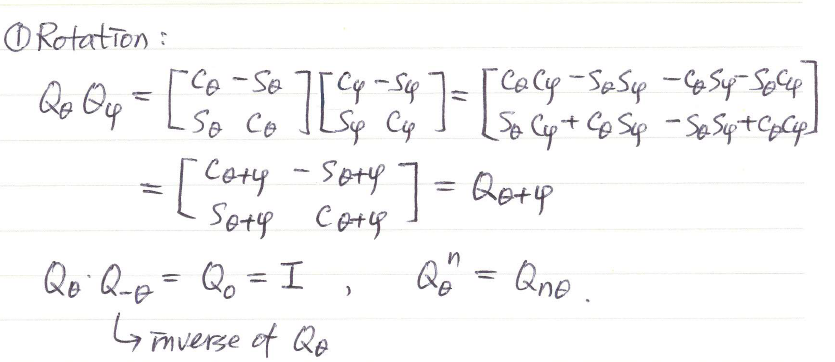 ① Rotation :
Q_θ Q_φ = [C_θ -S_θ; S_θ C_θ] [C_φ -S_φ; S_φ C_φ] = [C_θ C_φ - S_θ S_φ -C_θ S_φ - S_θ C_φ; S_θ C_φ + C_θ S_φ -S_θ S_φ + C_θ C_φ]
= [C_θ+φ -S_θ+φ; S_θ+φ C_θ+φ] = Q_θ+φ
Q_θ · Q_-θ = Q_0 = I , Q_θ^n = Q_nθ .
↳ inverse of Q_θ